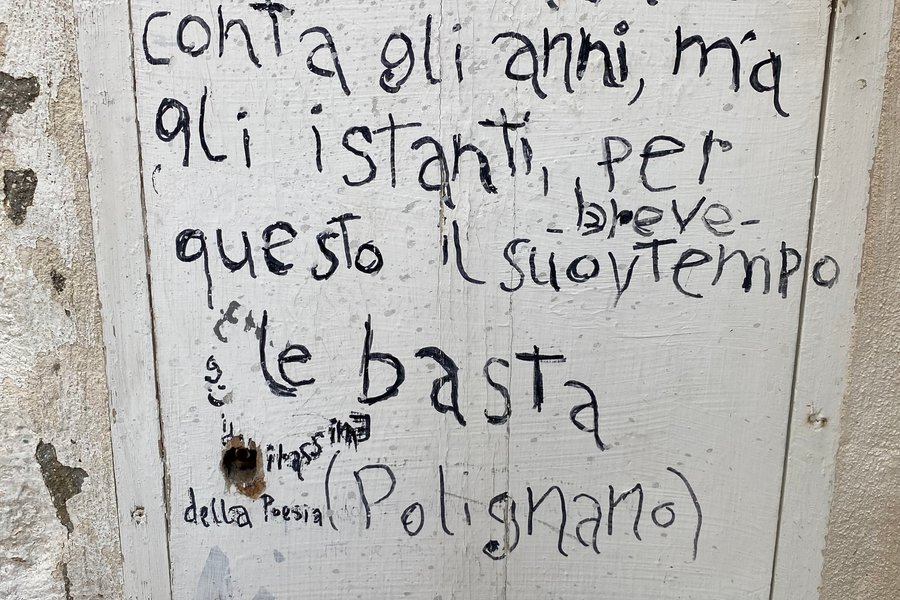 conta gli anni, ma
gli istanti, per
-breve-
questo il suo tempo
le basta
della Poesia (Polignano)